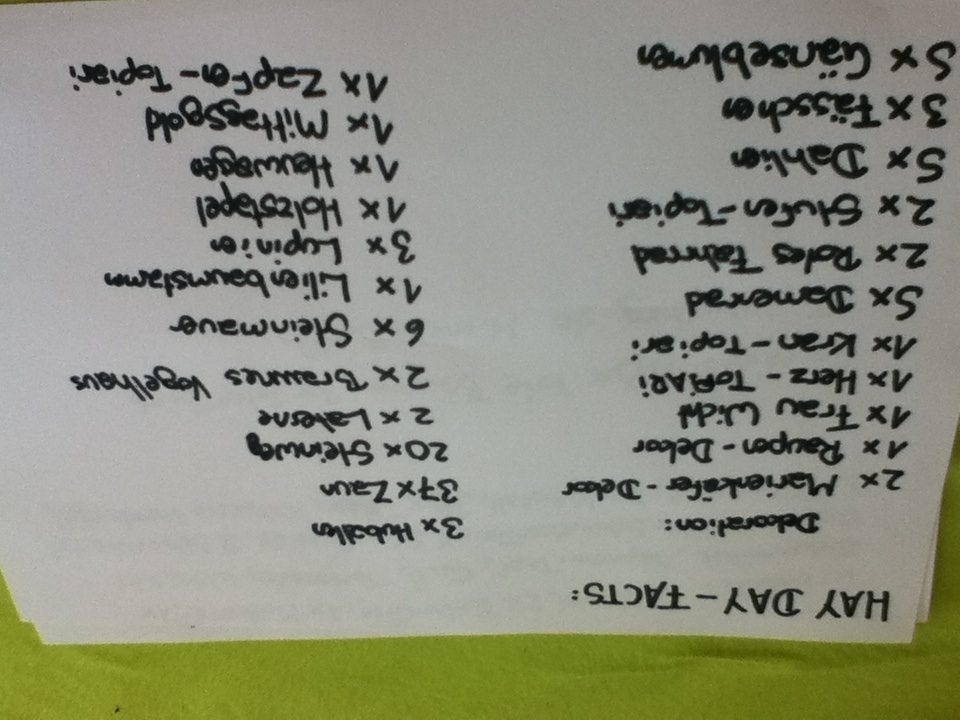 HAY DAY - FACTS:
Dekoration:
2x Marienkäfer - Dekor
1x Raupen - Dekor
1x Frau Wicht
1x Herz - TOPiARi
1x Kran - Topiari
5x Damenrad
2x Rotes Fahrrad
2x Stufen - Topiari
5x Dahlien
3x Fässchen
5x Gänseblumen
3x
37x Zaun
20x Steinweg
2x Laterne
2x Braunes Vogelhaus
6x Steinmauer
1x Lilienbaumstamm
3x Lupinien
1x Holzstapel
1x Heuwagen
1x Mittagsgold
1x Zapfen - Topiari